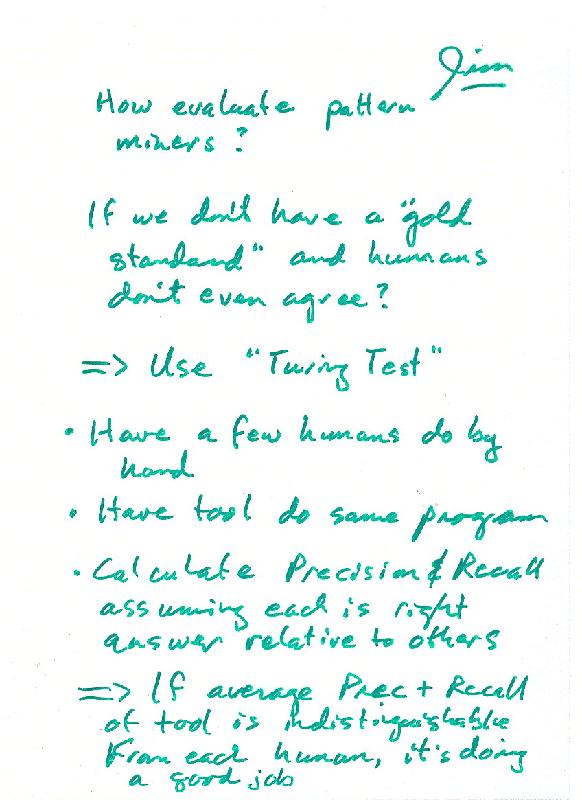 Jim
How evaluate pattern
miners?
If we don't have a "gold
standard" and humans
don't even agree?
=> Use "Turing Test"
• Have a few humans do by
hand
• Have tool do same program
• Calculate Precision & Recall
assuming each is right
answer relative to others
=> If average Prec + Recall
of tool is indistinguishable
from each human, it's doing
a good job